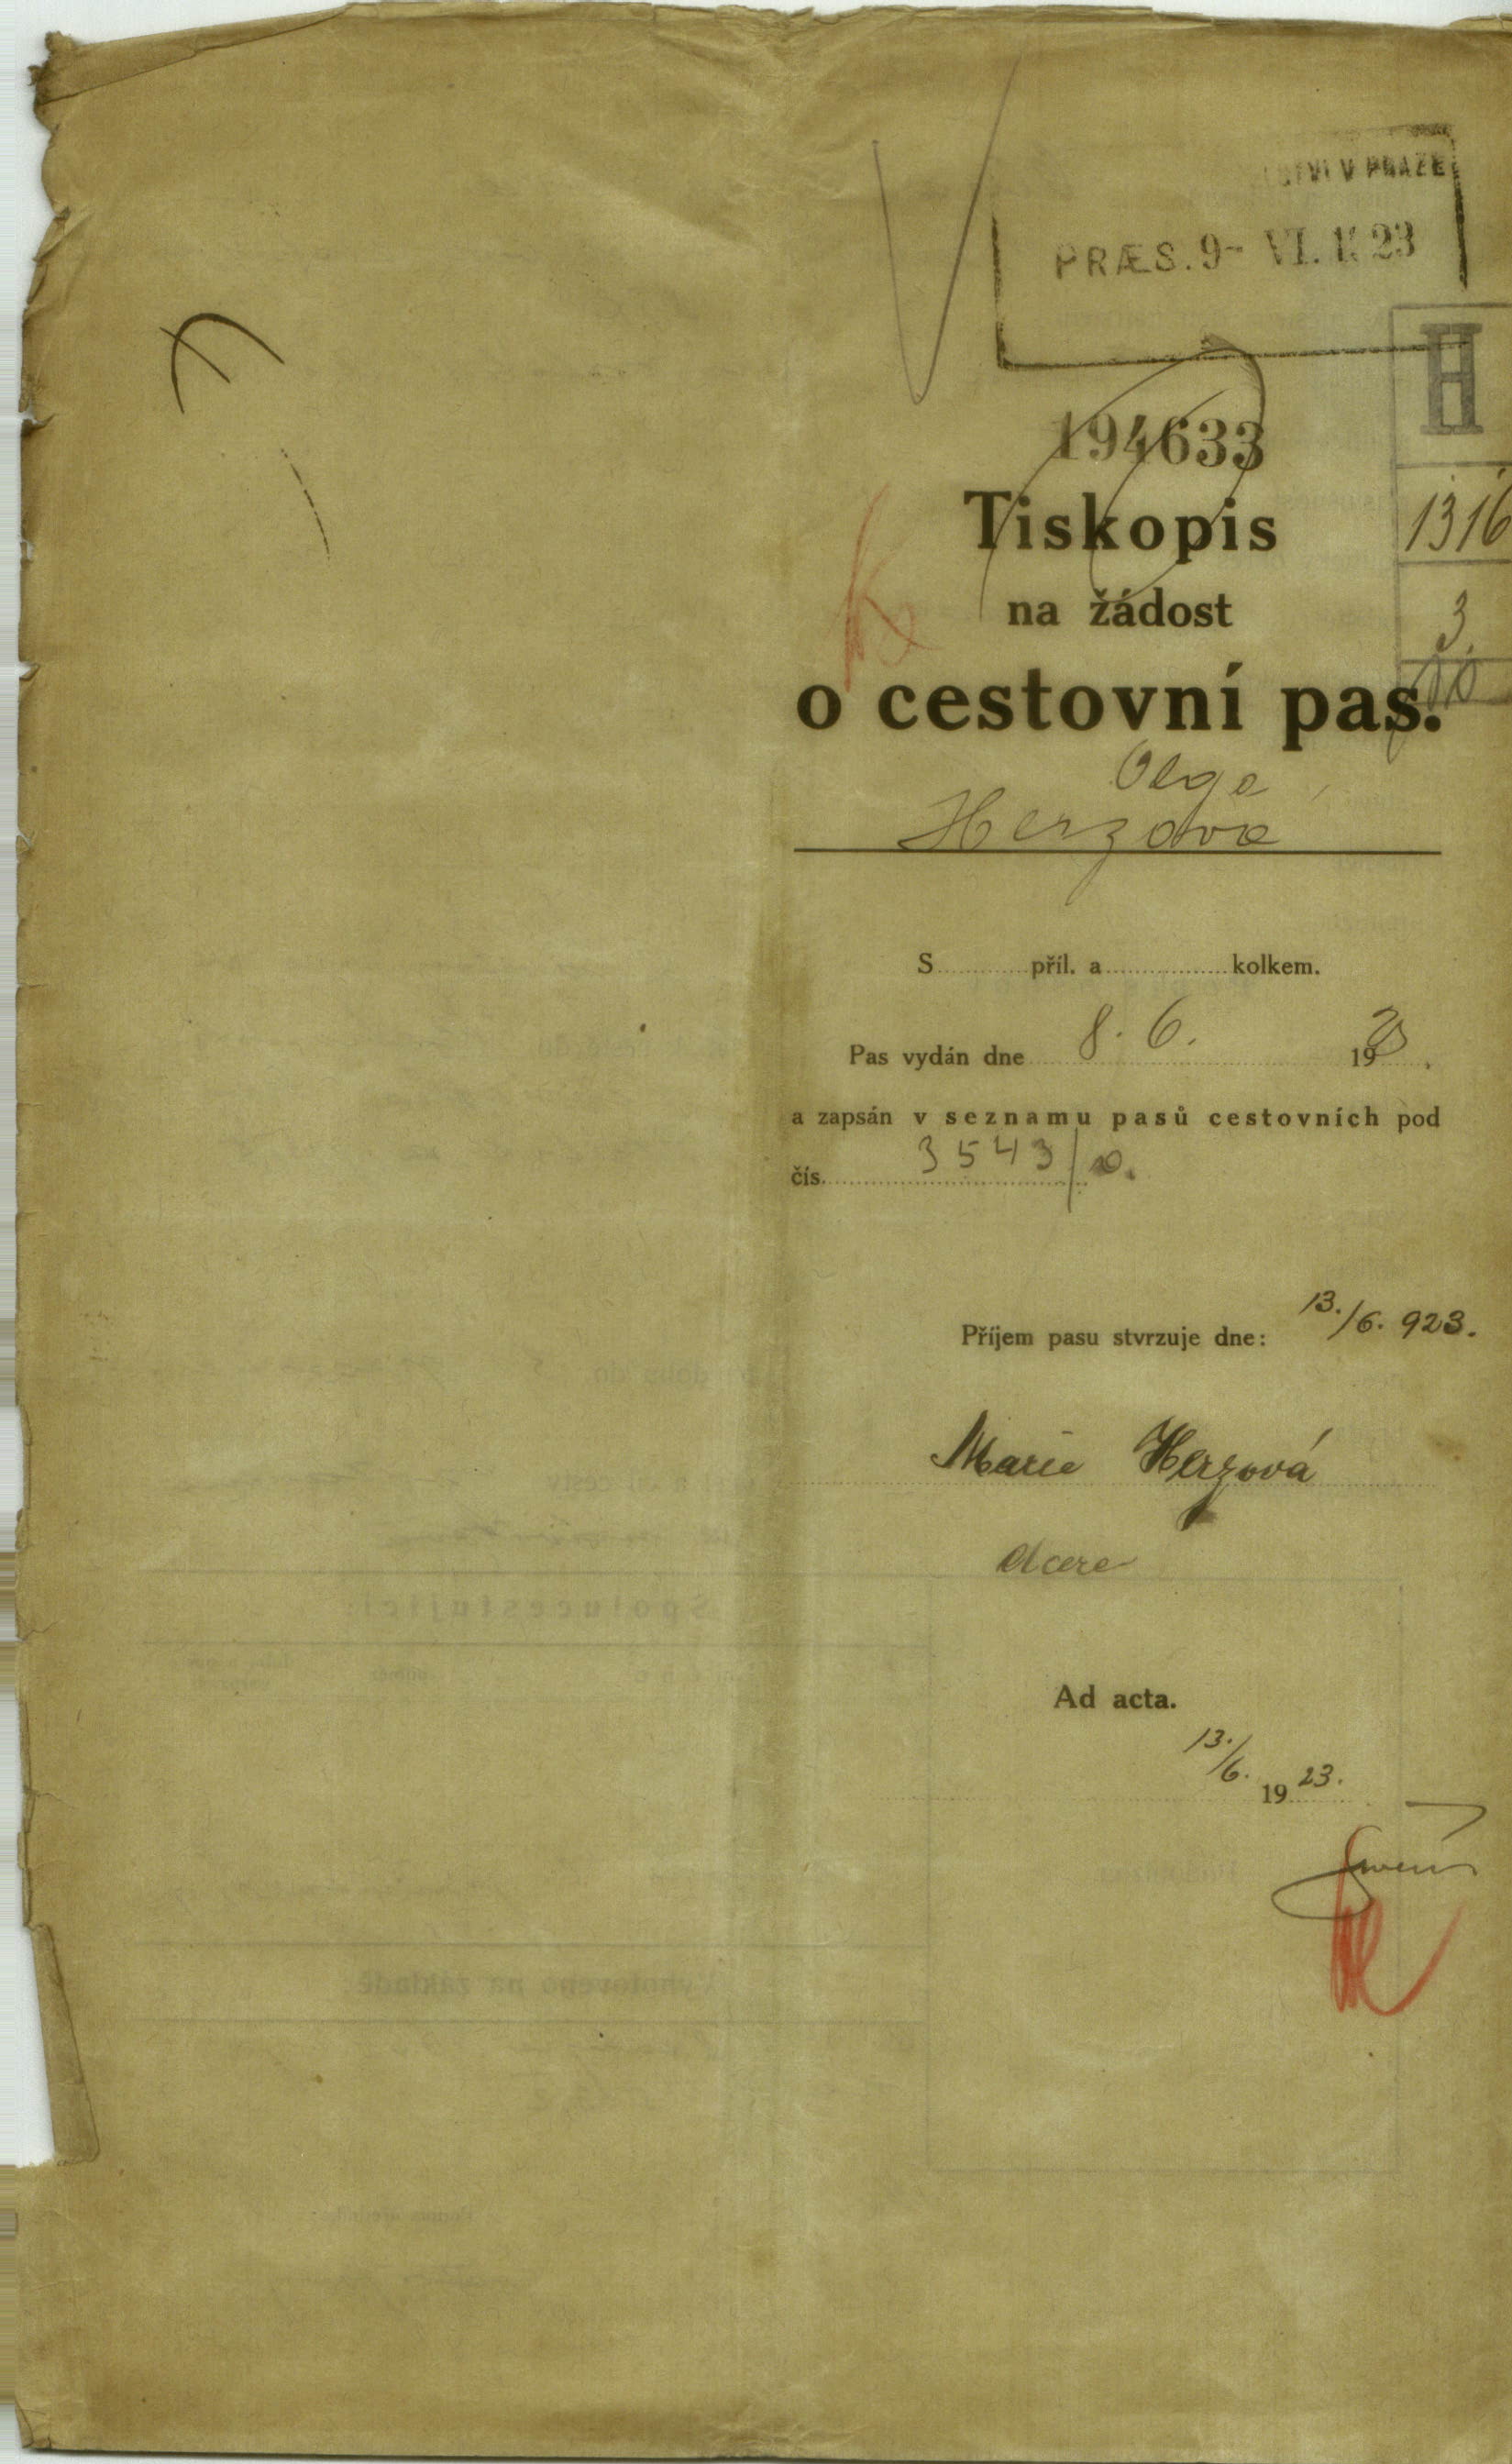 V PRAZE
PRÆS. 9- VI. 1923
H
194633
1316
Tiskopis
3.
na žádost
10
o cestovní pas.
Olga
Herzova
S ............ příl. a ................ kolkem.
Pas vydán dne 8. 6. 1923.
a zapsán v seznamu pasů cestovních pod
čís. 3543/
Příjem pasu stvrzuje dne: 13./6. 923.
Marie Herzová
dcera
Ad acta.
13./6. 1923.